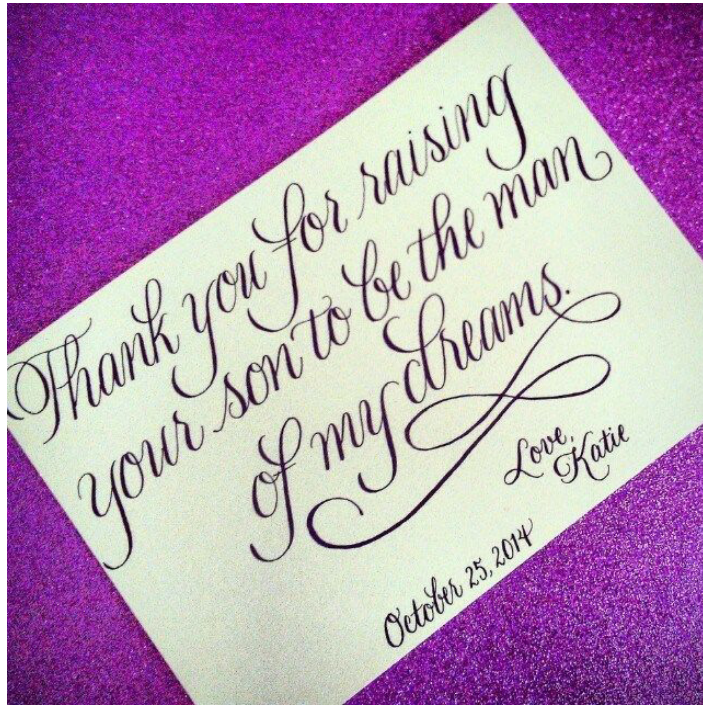 Thank you for raising
your son to be the man
of my dreams.
Love,
Katie
October 25, 2014